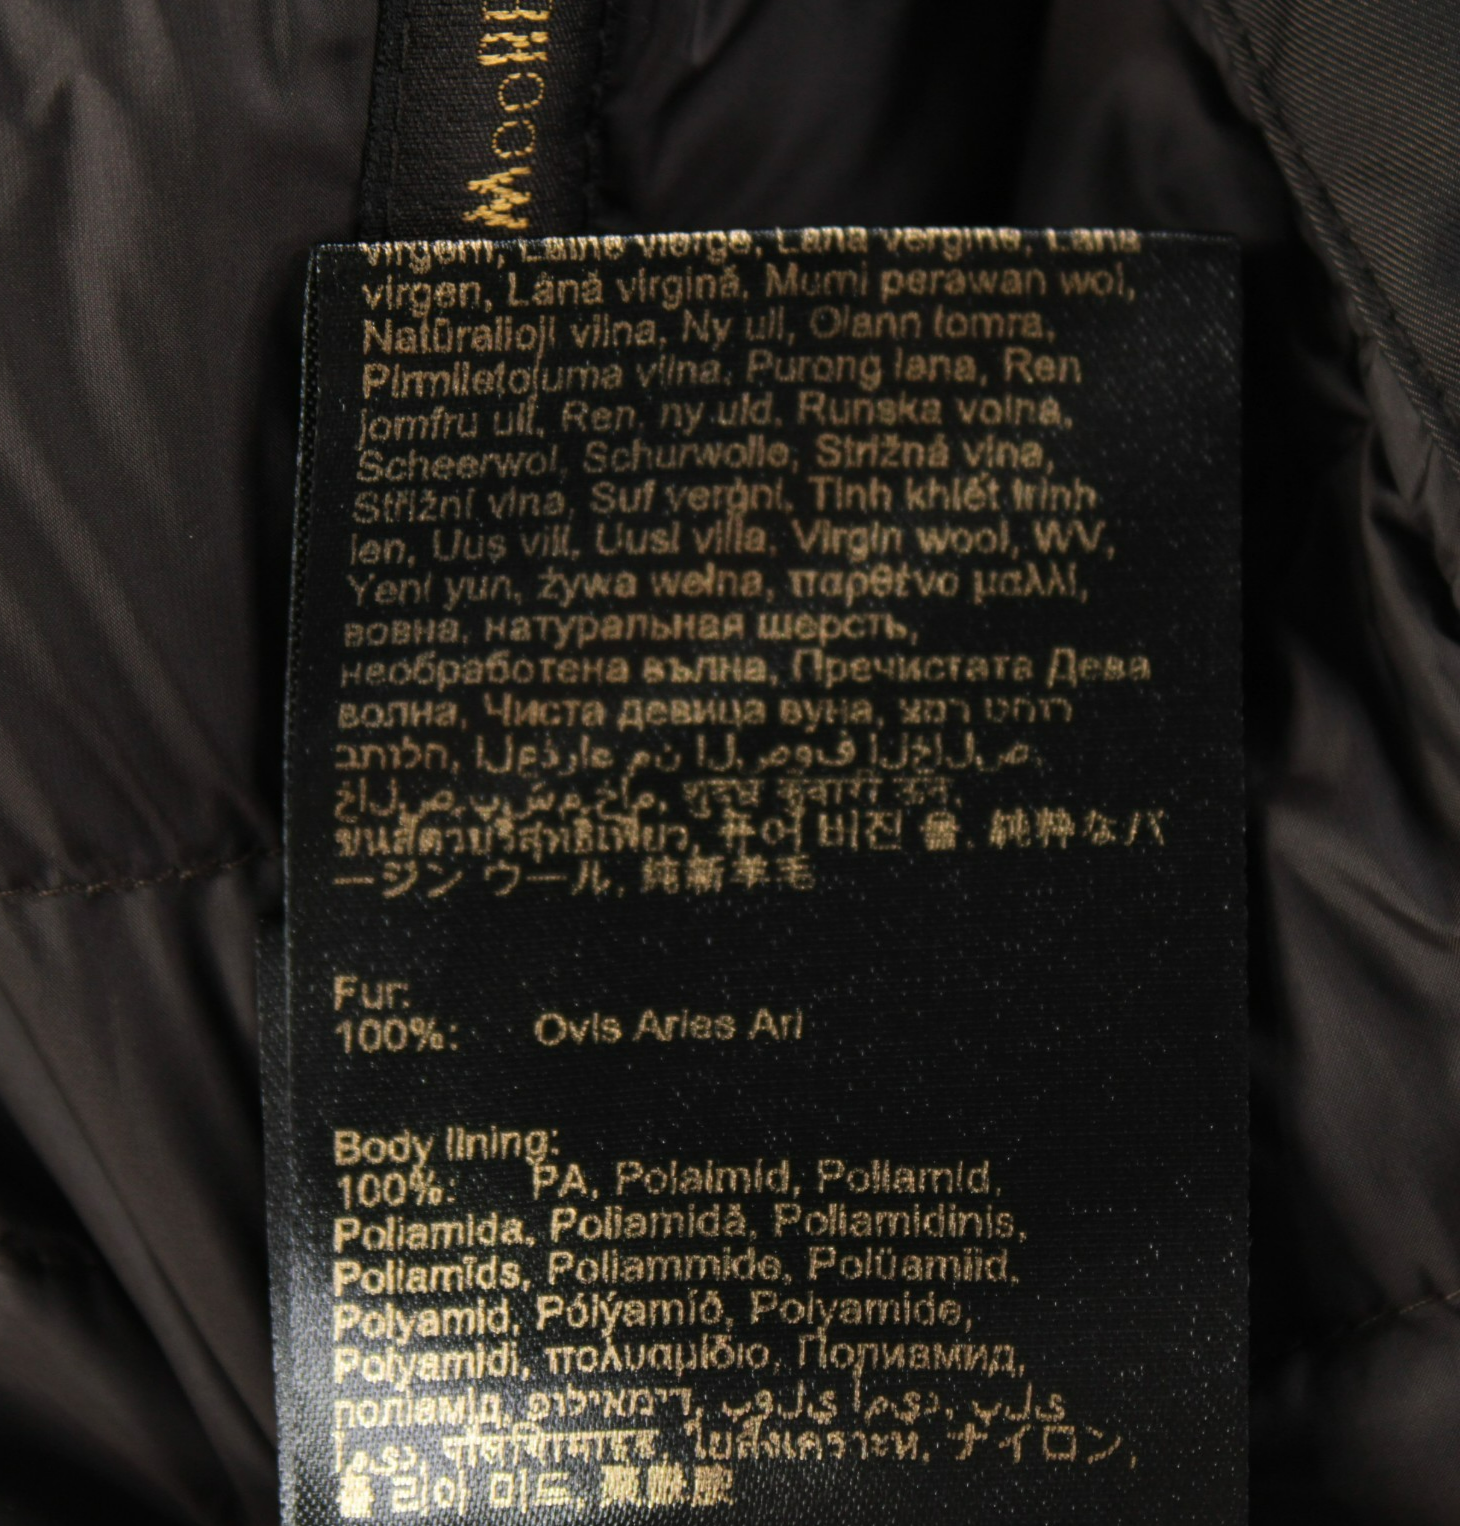 virgem, Laine vierge, Lana vergine, Lana
virgen, Lână virgină, Murni perawan wol,
Natūralioji vilna, Ny ull, Olann lomra,
Pirmlietojuma vilna, Purong lana, Ren
jomfru ull, Ren, ny uld, Runska volna,
Scheerwol, Schurwolle, Strižná vlna,
Střižní vlna, Suf verġni, Tinh khiết trinh
len, Uus vill, Uusi villa, Virgin wool, WV,
Yeni yun, żywa wełna, παρθένο μαλλί,
вовна, натуральная шерсть,
необработена вълна, Пречистата Дева
волна, Чиста девица вуна, צמר טהור
العذراء من الصوف الخالص,
शुद्ध कुंवारी ऊन,
ขนสัตว์บริสุทธิ์เพียว, 퓨어 버진 울, 純粋なバ
ージン ウール, 純新羊毛
Fur:
100%: Ovis Aries Ari
Body lining:
100%: PA, Polaimíd, Poliamid,
Poliamida, Poliamidă, Poliamidinis,
Poliamīds, Poliammide, Polüamiid,
Polyamid, Pólýamíð, Polyamide,
Polyamidi, πολυαμίδιο, Полиамид,
поліамід, פוליאמיד, بولي أميد, پلی
آمید, ใยสังเคราะห์, ナイロン,
폴리아미드, 聚酰胺